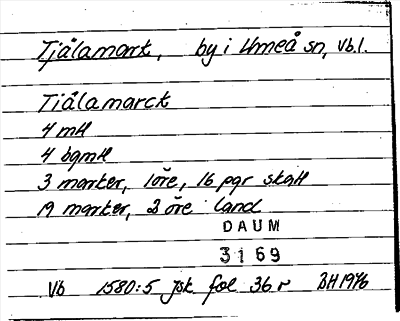 Tjälamark, by i Umeå sn, Vb.l.
Tiälamarck
4 mtl
4 bgmtl
3 marker, 1 öre, 16 pgr skatt
19 marker, 2 öre land
DAUM
3169
Vb 1580:5 jsk fol 36 r BH 1976